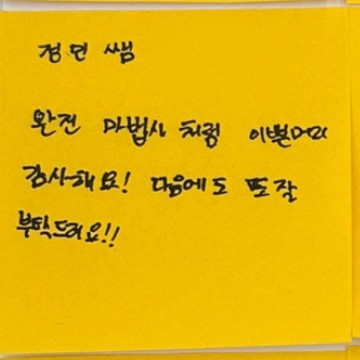 정민 쌤
완전 마법사 처럼 이쁜머리
감사해요! 다음에도 또 잘
부탁드려요!!